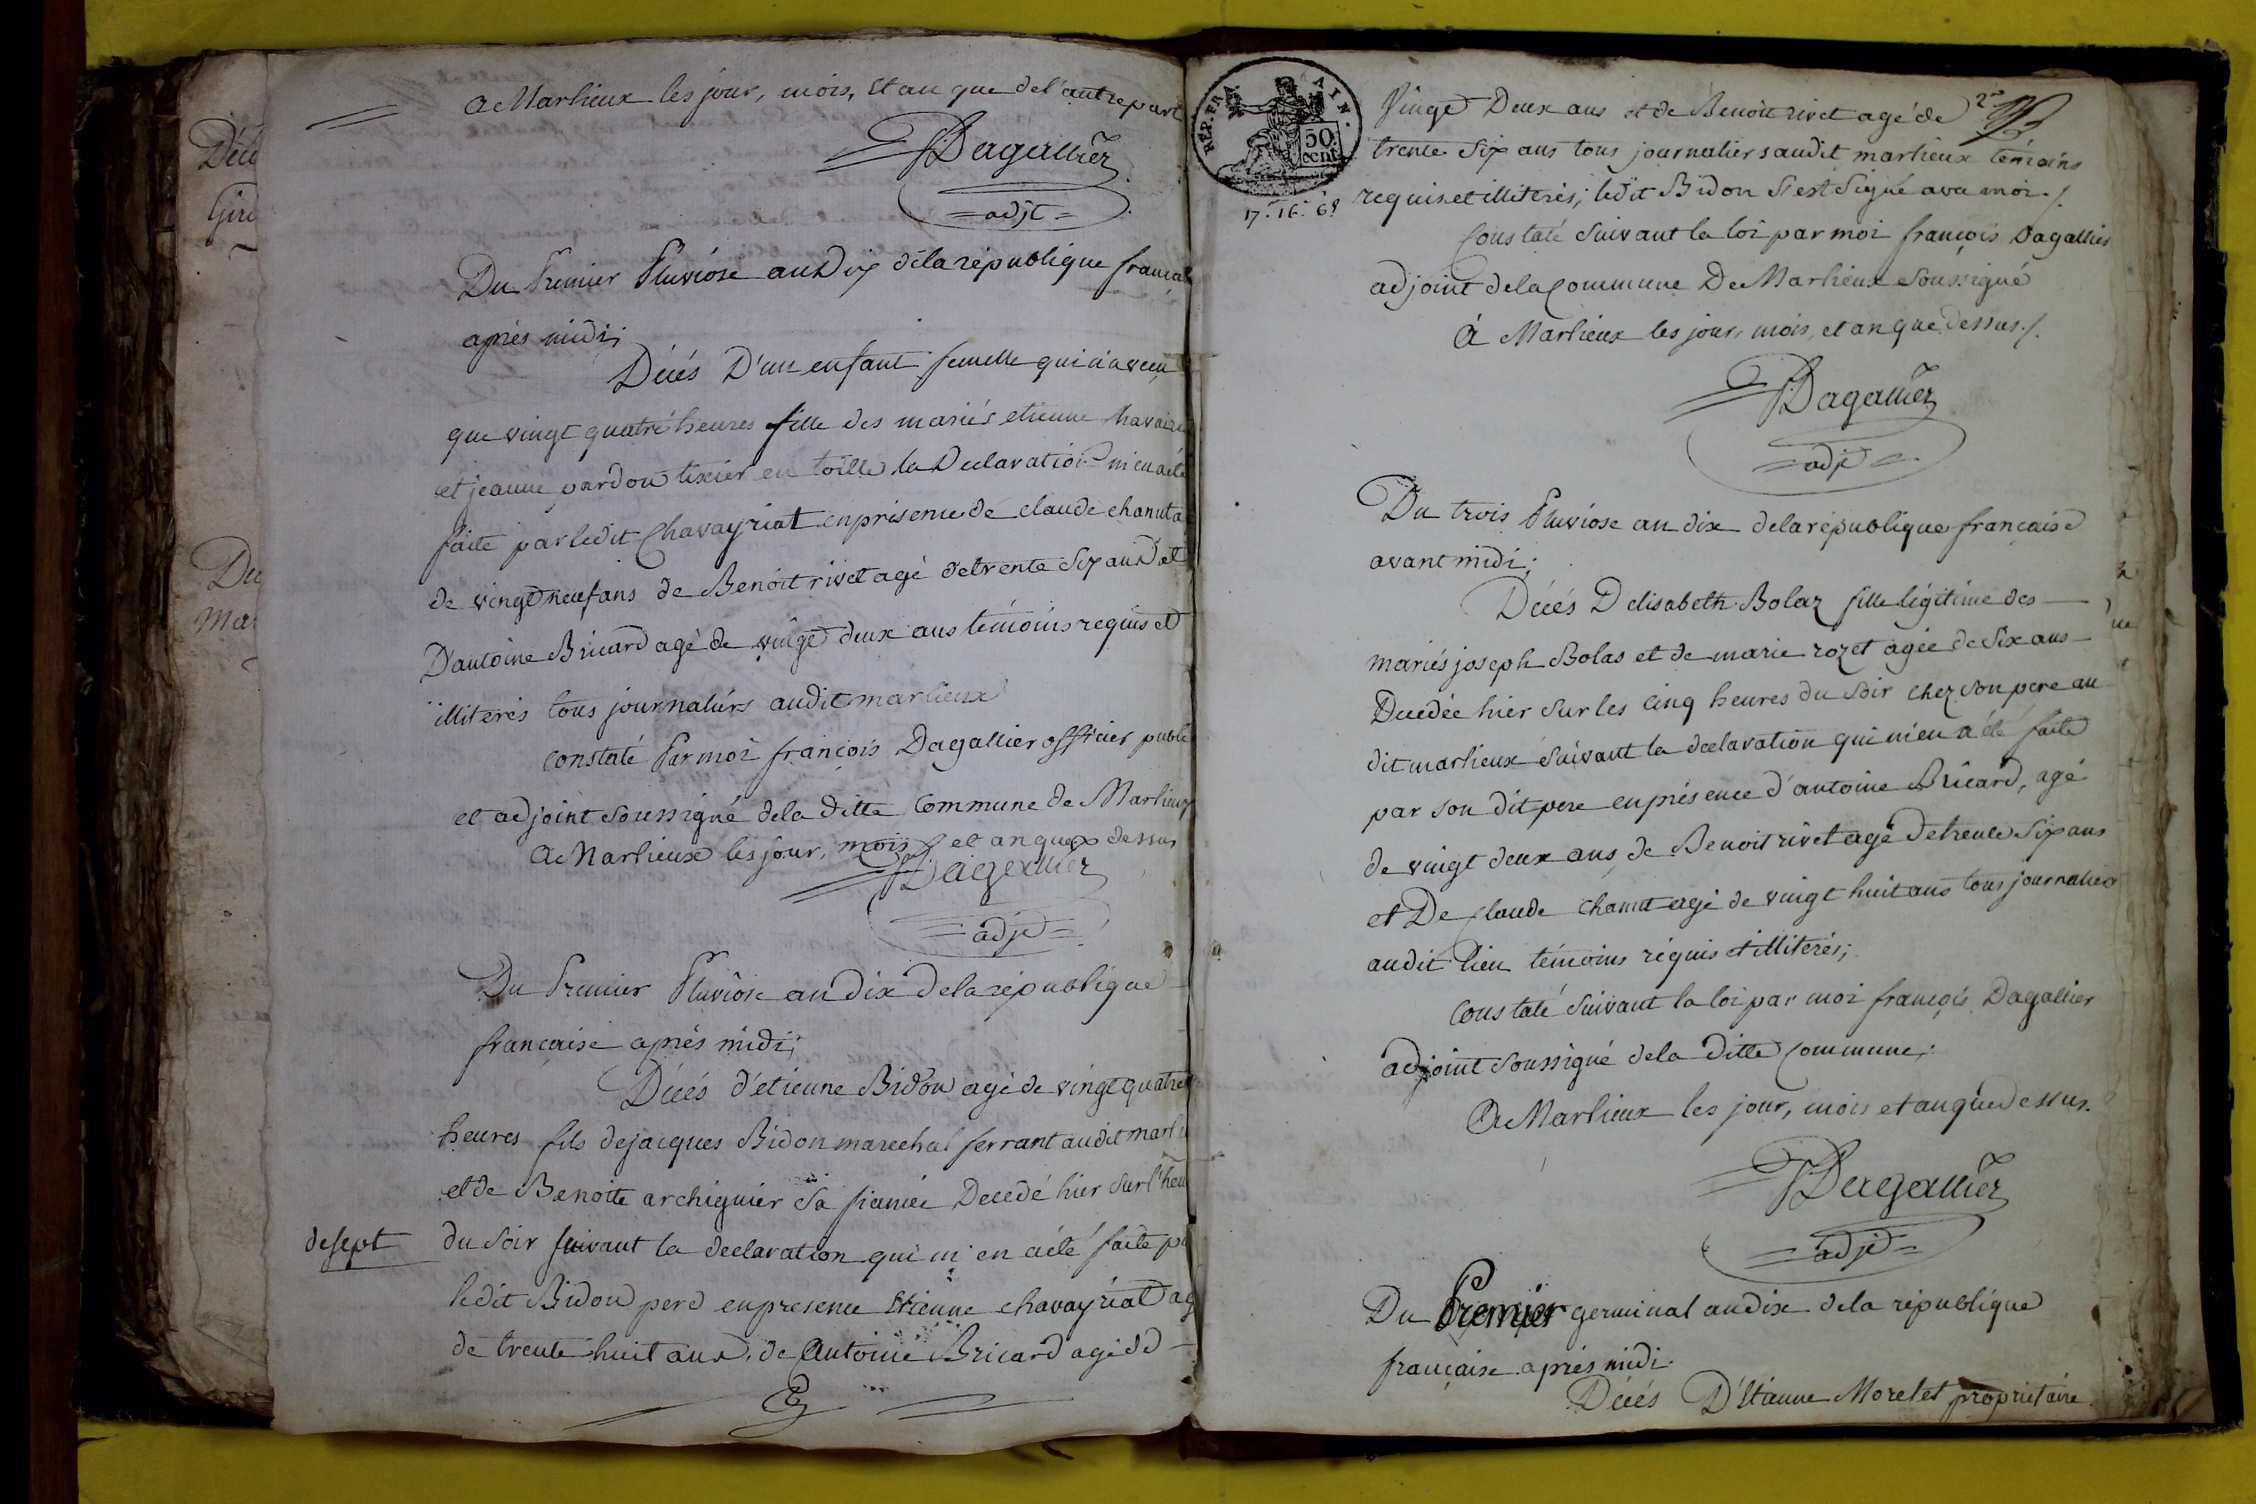 Déce
Gir
Dec
Ma
A Marlieux les jour, mois, et an que de l'autre part
Dagallier
adjt
Du Premier Pluviôse an Dix de la république françai
après midi;
Décés D'un enfant femelle qui n'a vécu
que vingt quatre heures fille des mariés etienne Chavairi
et jeanne pardon tixier en toille la Declaration m'en a été
faite par ledit Chavayriat en présence de claude chanut a
de vingt neuf ans de Benoit rivet agé de trente Six ans et
D'antoine Bricard agé de vingt deux ans témoins requis et
illiterés tous journaliérs audit marlieux
constaté Par moi françois Dagallier officier public
et adjoint soussigné de la ditte Commune de Marlieux
A Marlieux les jour, mois, et an que dessus
Dagallier
adjt
Du Premier Pluviôse an dix de la république
française après midi;
Décés d'étienne Bidon agé de vingt quatre
heures fils de jacques Bidon marechal ferrant audit marli
et de Benoite archiguier sa fiancée Decedé hier sur l'heu
de sept
du Soir suivant la declaration qui m'en a été faite pa
ledit Bidon pere en presence Etienne chavayriat ag
de trente huit ans, de Antoine Bricard agé de
REP. FRA. AIN.
50 cent
17. 16. 68
Vingt Deux ans et de Benoit rivet agé de 2
trente Six ans tous journaliers audit marlieux témoins
requis et illiterés; ledit Bidon S'est Signé avec moi ./.
Constaté Suivant la loi par moi françois Dagallier
adjoint de la Commune De Marlieux Soussigné
A Marlieux les jour, mois, et an que dessus./.
Dagallier
adjt
Du trois Pluviose an dix de la république française
avant midi;
Décés D elisabeth Bolaz fille légitime des
mariés joseph Bolas et de marie rozet agée de Six ans
Decedée hier Sur les cinq heures du Soir chez Son pere au
dit marlieux Suivant la declaration qui m'en a été faite
par son dit pere en présence d'antoine Bricard, agé
de vingt deux ans de Benoit rivet agé De trente Six ans
et De Claude chanut agé de vingt huit ans tous journaliers
audit lieu témoins réquis et illiterés;
Constaté Suivant la loi par moi françois Dagallier
adjoint Soussigné de la Ditte Commune;
A Marlieux les jour, mois et an que dessus.
Dagallier
adjt
Du Premier germinal an dix de la république
française après midi.
Décés D'Etienne Morelet propriétaire